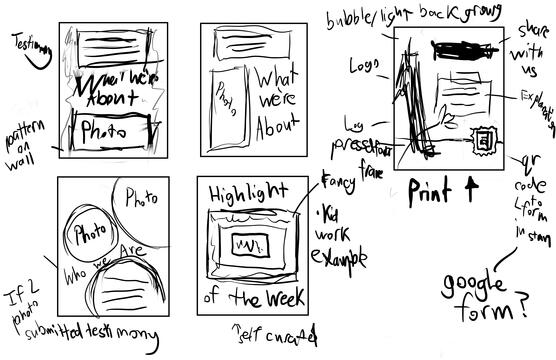 Testimony
What we're
About
Photo
pattern
on
wall
Photo
What
we're
About
bubble/light background
Logo
share
with
us
Explanation
frame
Print ↑
qr
code
to
form
in stand
google
form?
Photo
Photo
Who we Are
If 2
photo
submitted testimony
Highlight
of the Week
fancy
• Kid
work
example
↑ self curated